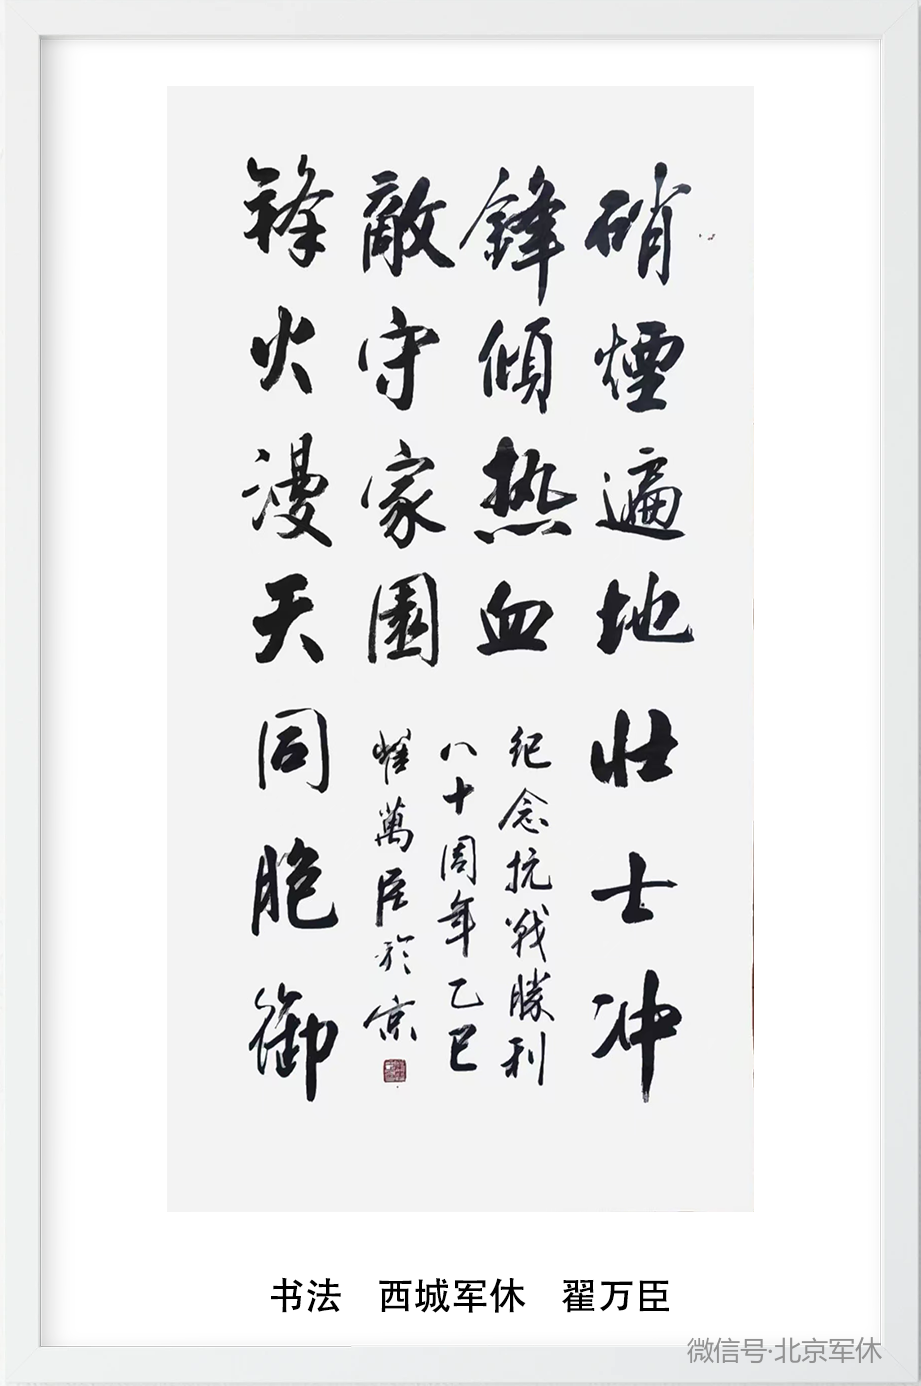 硝煙遍地壮士冲
鋒傾热血
烽火漫天同胞御
敵守家園
纪念抗戰勝利
八十周年乙巳
翟萬臣於京
书法 西城军休 翟万臣
微信号·北京军休